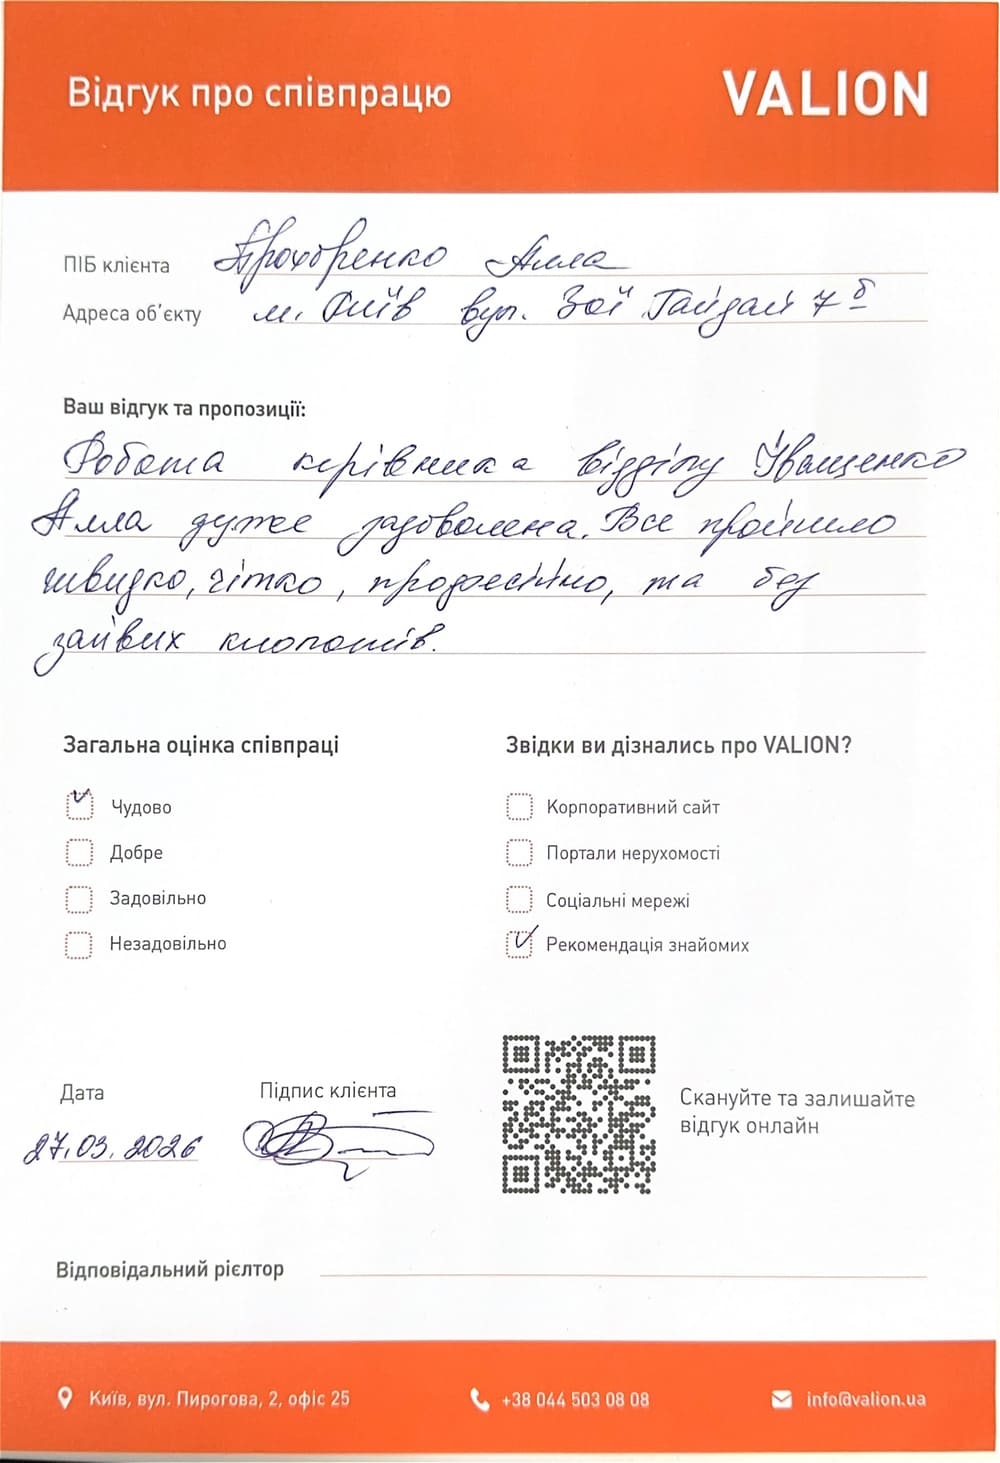 Відгук про співпрацю
VALION
ПІБ клієнта Прохоренко Алла
Адреса об'єкту м. Київ вул. Зої Гайдай 7б
Ваш відгук та пропозиції:
Робота керівника відділу Іващенко
Алла дуже задоволена. Все пройшло
швидко, чітко, професійно, та без
зайвих клопотів.
Загальна оцінка співпраці
Чудово
Добре
Задовільно
Незадовільно
Звідки ви дізнались про VALION?
Корпоративний сайт
Портали нерухомості
Соціальні мережі
Рекомендація знайомих
Дата
27.03.2026
Підпис клієнта
Скануйте та залишайте
відгук онлайн
Відповідальний рієлтор
Київ, вул. Пирогова, 2, офіс 25
+38 044 503 08 08
info@valion.ua